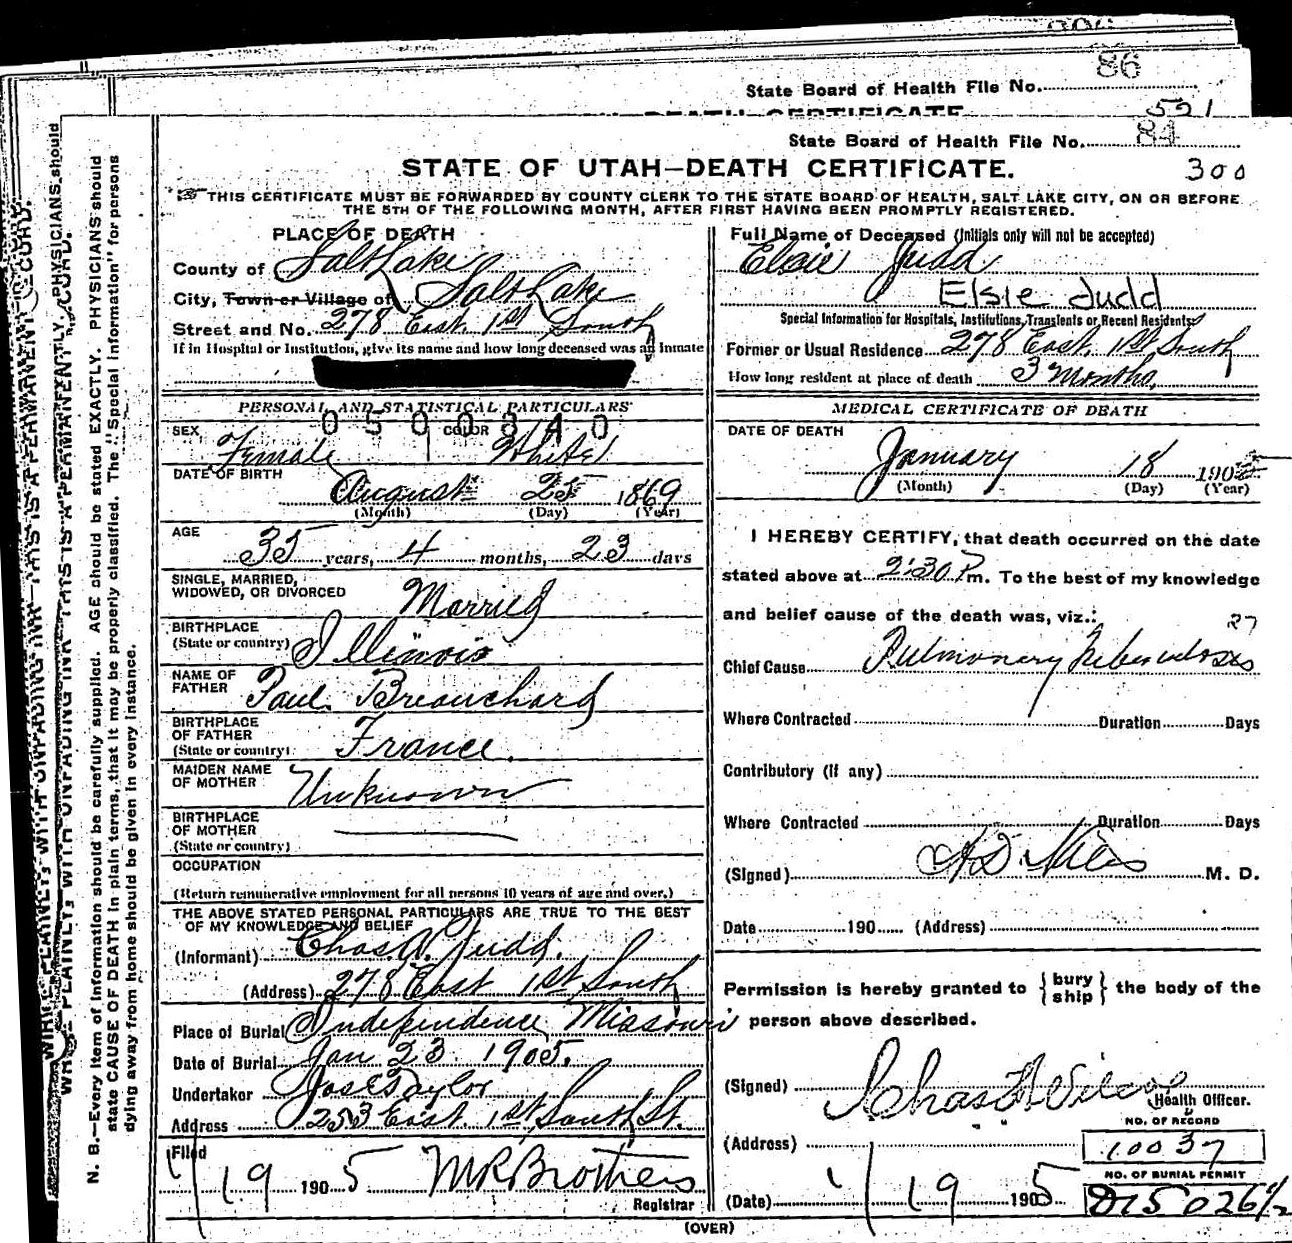 86
State Board of Health File No.
521
DEATH CERTIFICATE
State Board of Health File No. 84
STATE OF UTAH—DEATH CERTIFICATE.
300
THIS CERTIFICATE MUST BE FORWARDED BY COUNTY CLERK TO THE STATE BOARD OF HEALTH, SALT LAKE CITY, ON OR BEFORE
THE 5TH OF THE FOLLOWING MONTH, AFTER FIRST HAVING BEEN PROMPTLY REGISTERED.
PLACE OF DEATH
County of Salt Lake
City, Town or Village of Salt Lake
Street and No. 278 East. 1st South
If in Hospital or Institution, give its name and how long deceased was an Inmate
PERSONAL AND STATISTICAL PARTICULARS
0500340
SEX Female COLOR White
DATE OF BIRTH August 25 1869
(Month) (Day) (Year)
AGE 35 years, 4 months, 23 days
SINGLE, MARRIED,
WIDOWED, OR DIVORCED Married
BIRTHPLACE
(State or country) Illinois
NAME OF
FATHER Paul Breauchard
BIRTHPLACE
OF FATHER
(State or country) France.
MAIDEN NAME
OF MOTHER Unknown
BIRTHPLACE
OF MOTHER
(State or country)
OCCUPATION
(Return remunerative employment for all persons 10 years of age and over.)
THE ABOVE STATED PERSONAL PARTICULARS ARE TRUE TO THE BEST
OF MY KNOWLEDGE AND BELIEF
(Informant) Chas. A. Judd.
(Address) 278 East 1st South
Place of Burial Independence Missouri
Date of Burial Jan 23 1905.
Undertaker Jos E Taylor
Address 253 East. 1st South St.
Filed
1/19 1905 M R Brothers
Registrar
Full Name of Deceased (Initials only will not be accepted)
Elsie Judd
Elsie Judd
Special Information for Hospitals, Institutions, Transients or Recent Residents
Former or Usual Residence 278 East. 1st South
How long resident at place of death 3 Months.
MEDICAL CERTIFICATE OF DEATH
DATE OF DEATH
January 18 1905
(Month) (Day) (Year)
I HEREBY CERTIFY, that death occurred on the date
stated above at 2:30 P m. To the best of my knowledge
and belief cause of the death was, viz.:
27
Chief Cause Pulmonary Tuberculosis
Where Contracted Duration Days
Contributory (if any)
Where Contracted Duration Days
(Signed) M. D.
Date 190 (Address)
Permission is hereby granted to { bury ship } the body of the
person above described.
(Signed) Chas Wilcox
Health Officer.
NO. OF RECORD
(Address) 10037
NO. OF BURIAL PERMIT
(Date) 1/19 1905 D15026 1/2
(OVER)
N. B.—Every item of information should be carefully supplied. AGE should be stated EXACTLY. PHYSICIANS should
state CAUSE OF DEATH in plain terms, that it may be properly classified. The "Special Information" for persons
dying away from home should be given in every instance.